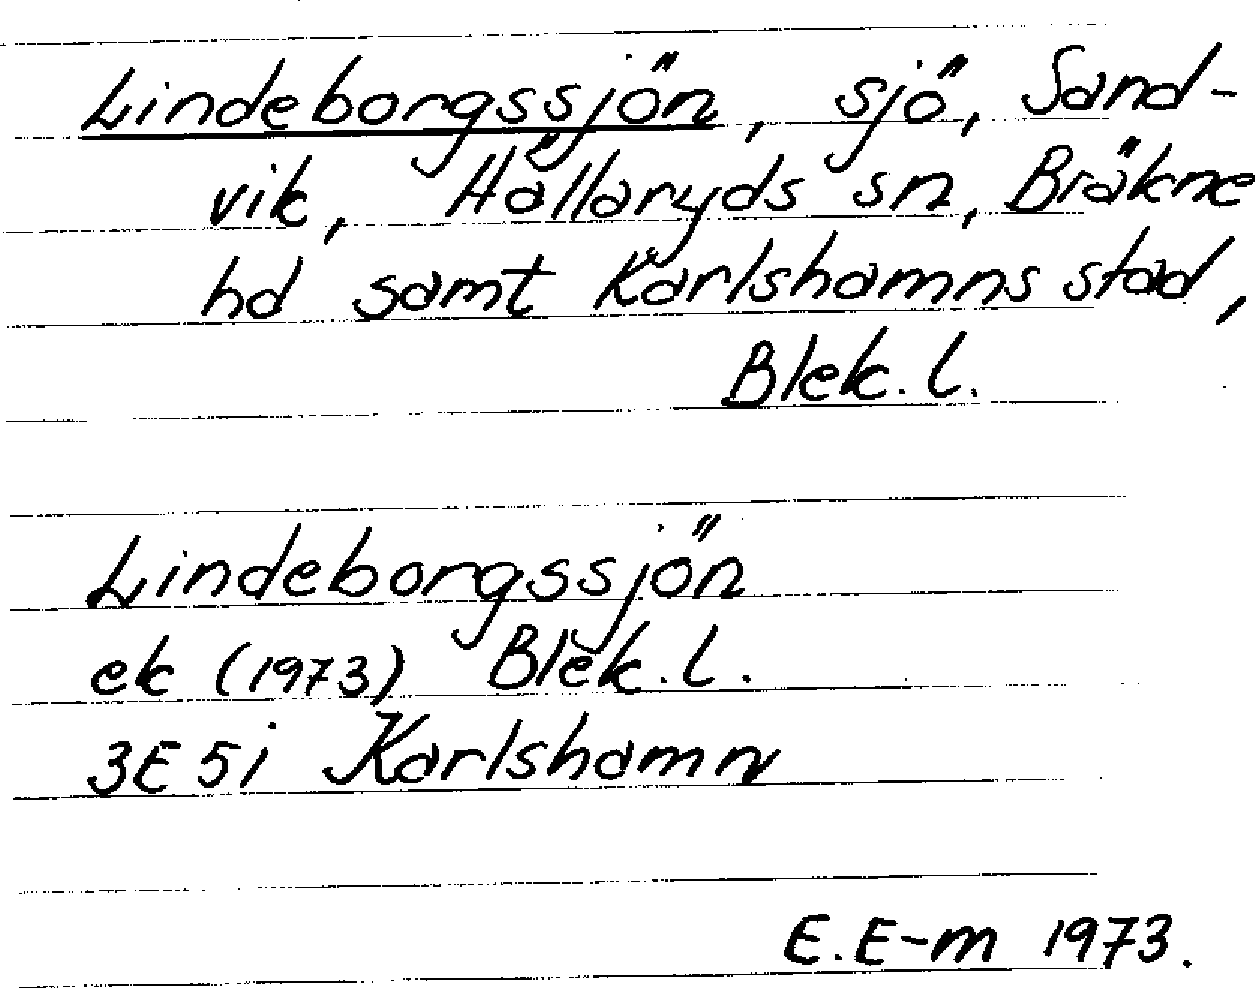 Lindeborgssjön, sjö, Sand-
vik, Hällaryds sn, Bräkne
hd samt Karlshamns stad,
Blek. l.
Lindeborgssjön
ek (1973) Blek. l.
3E 5i Karlshamn
E. E-m 1973.